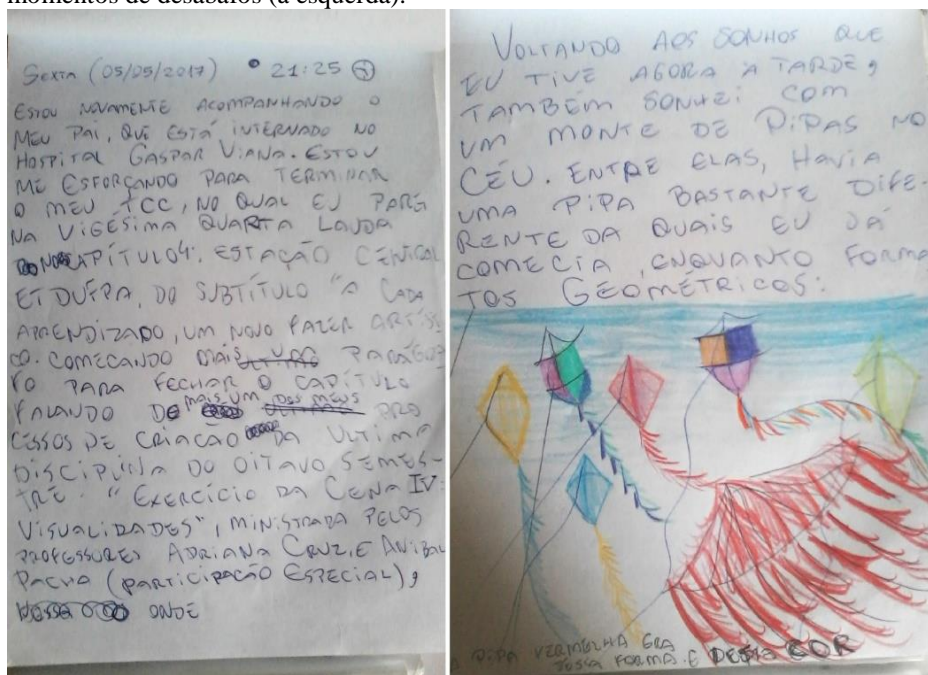 momentos de desabafos (à esquerda):
SEXTA (05/05/2017) • 21:25
ESTOU NOVAMENTE ACOMPANHANDO O
MEU PAI, QUE ESTÁ INTERNADO NO
HOSPITAL GASPAR VIANA. ESTOU
ME ESFORÇANDO PARA TERMINAR
O MEU TCC, NO QUAL EU PAREI
NA VIGÉSIMA QUARTA LAUDA
CAPÍTULO 4: ESTAÇÃO CÊNICA
ETDUFPA, DO SUBTÍTULO "A CADA
APRENDIZADO, UM NOVO FAZER ARTÍSTI
CO. COMEÇANDO MAIS PARÁGRA
FO PARA FECHAR O CAPÍTULO
FALANDO DE MAIS UM DOS MEUS PRO
CESSOS DE CRIAÇÃO DA ULTIMA
DISCIPLINA DO OITAVO SEMES-
TRE. "EXERCÍCIO DA CENA IV:
VISUALIDADES", MINISTRADA PELOS
PROFESSORES ADRIANA CRUZ E ANIBAL
PACHA (PARTICIPAÇÃO ESPECIAL),
ONDE
VOLTANDO AOS SONHOS QUE
EU TIVE AGORA À TARDE,
TAMBÉM SONHEI COM
UM MONTE DE PIPAS NO
CÉU. ENTRE ELAS, HAVIA
UMA PIPA BASTANTE DIFE-
RENTE DA QUAIS EU JÁ
CONHECIA, ENQUANTO FORMA
TOS GEOMÉTRICOS:
A PIPA VERMELHA ERA
DESSA FORMA E DESTA COR